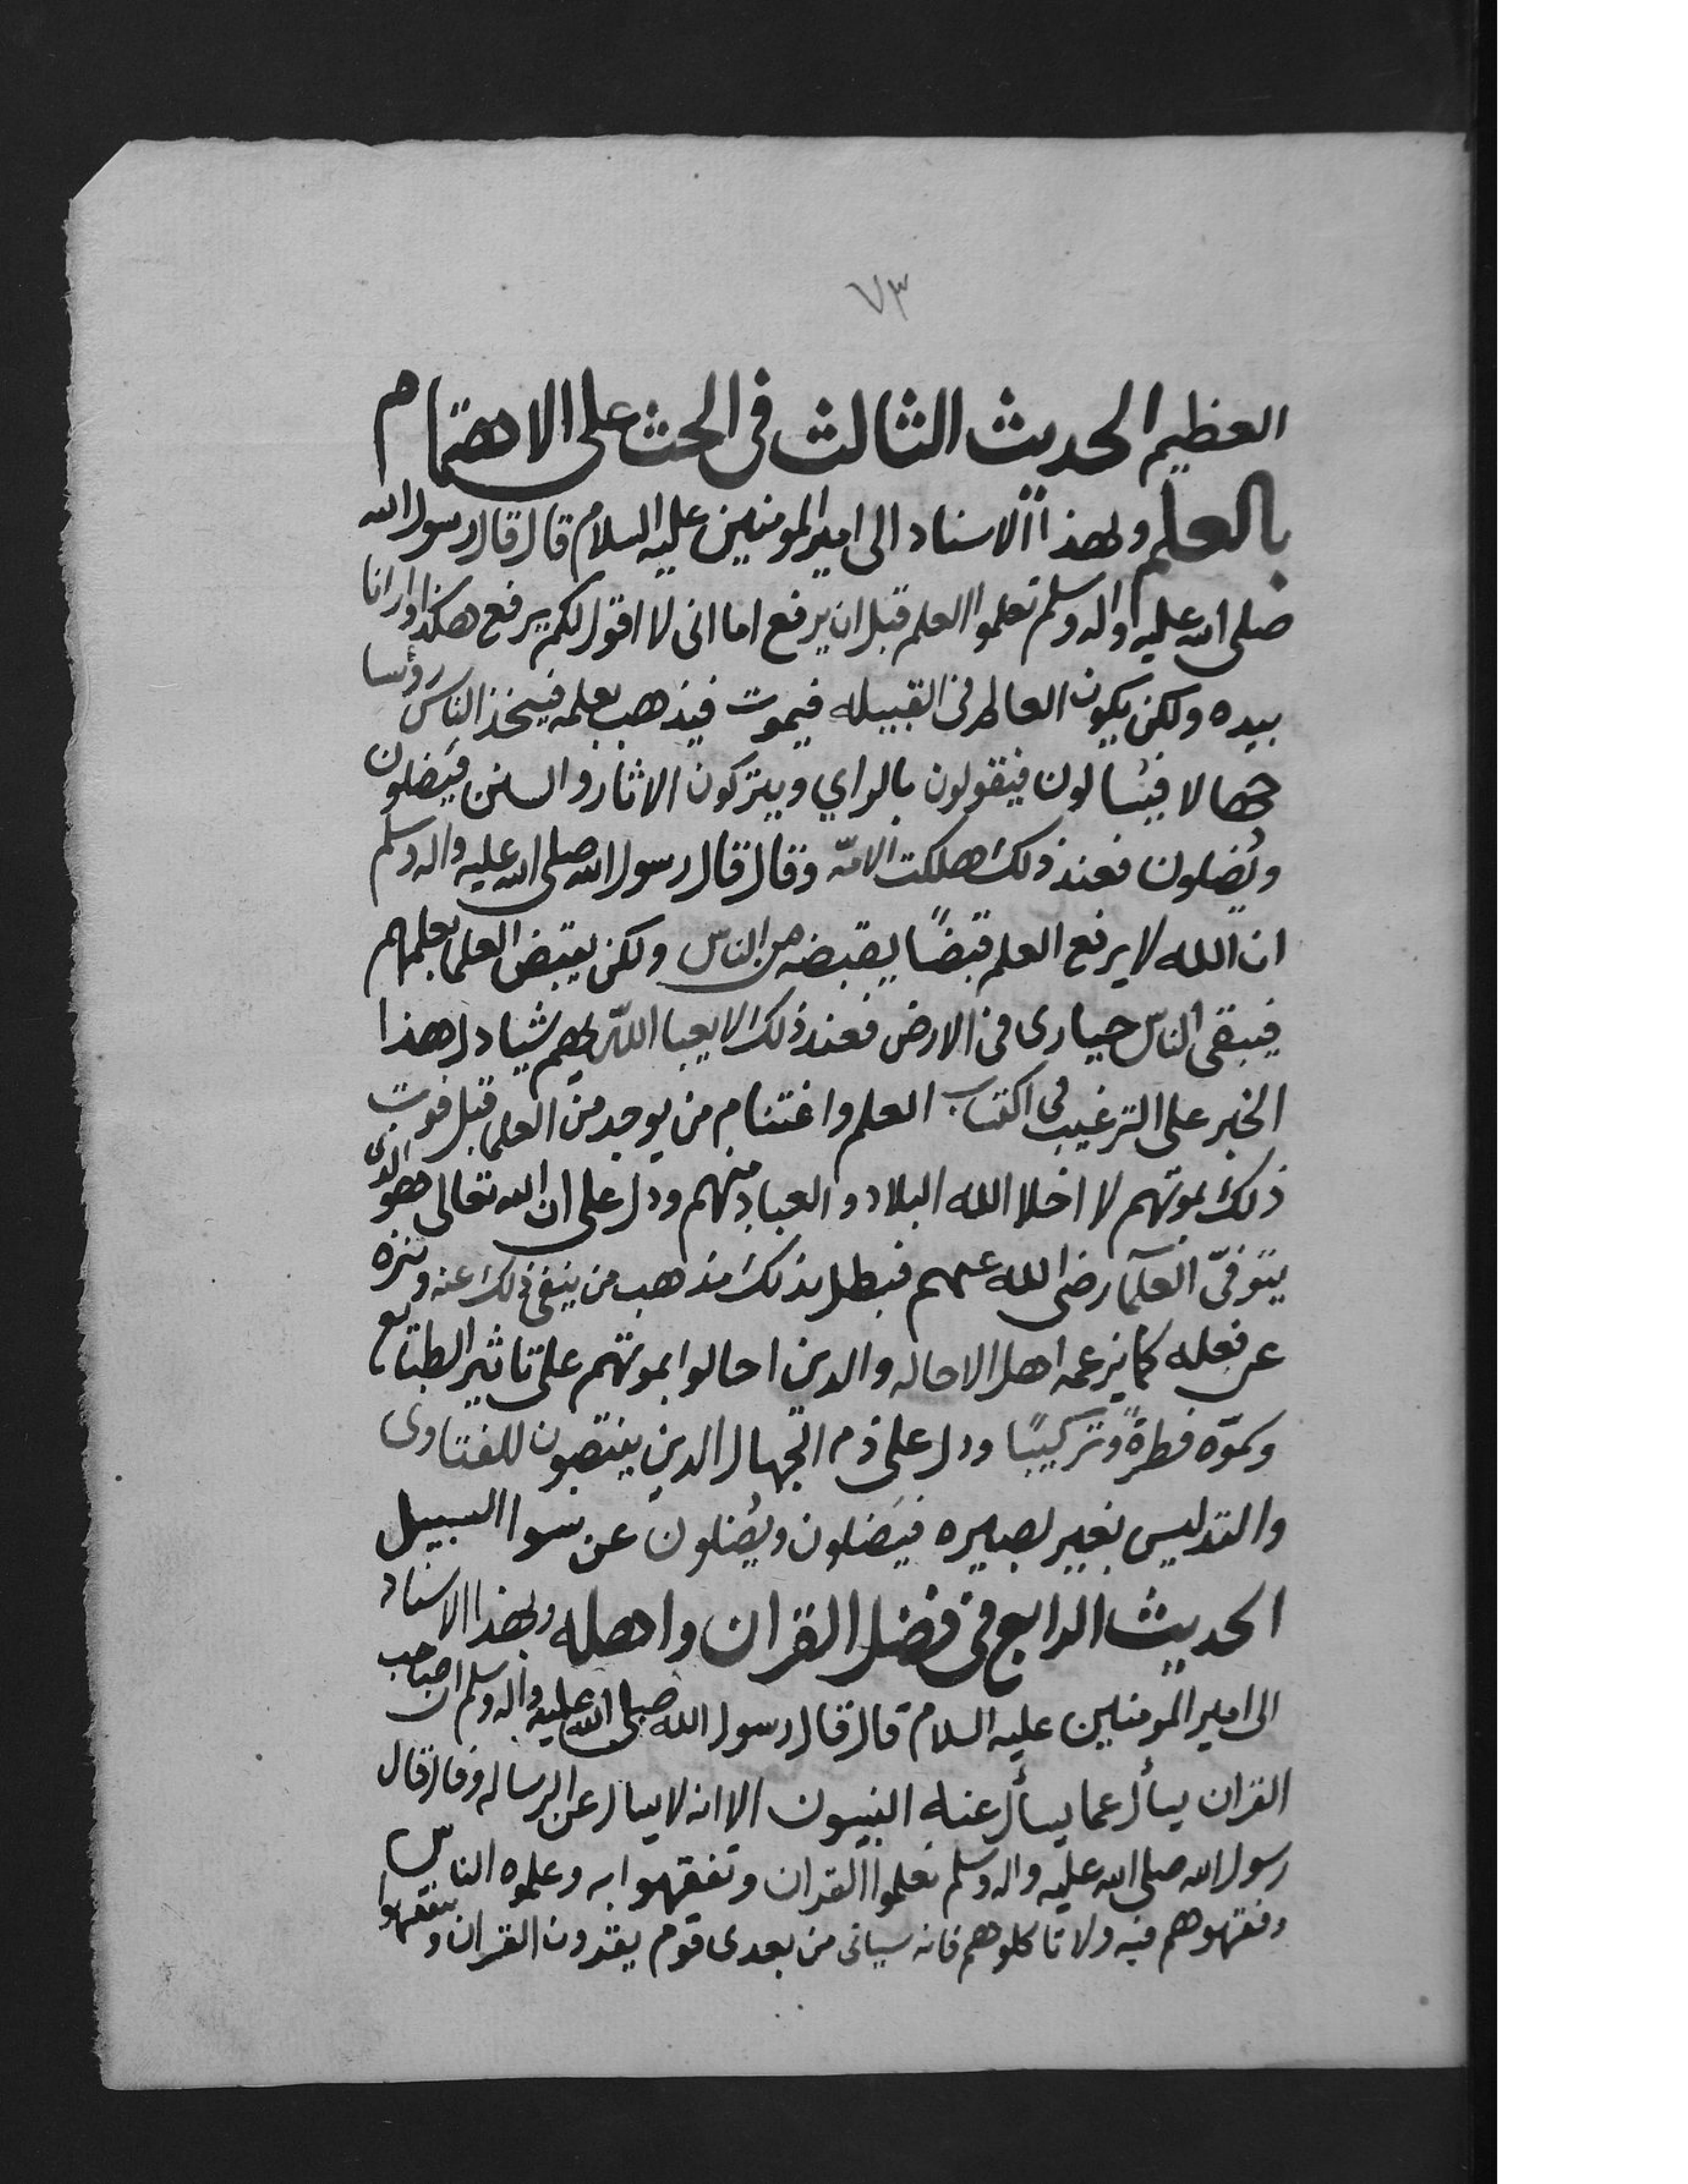 ٧٣
العظيم الحديث الثالث في الحث على الاهتمام
بالعلم وبهذا الاسناد الى امير المومنين عليه السلام قال قال رسول الله
صلى الله عليه واله وسلم تعلموا العلم قبل ان يرفع اما انى لا اقول لكم يرفع هكذا وارانا
بيده ولكن يكون العالم في القبيله فيموت فيذهب بعلمه فيتخذ الناس رؤسا
جهالا فيسالون فيقولون بالراي ويتركون الاثار والسنن فيَضلون
ويُضلون فعند ذلك هلكت الامّه وقال قال رسول الله صلى الله عليه واله وسلم
ان الله لا يرفع العلم قبضًا يقبضه من الناس ولكن يقبض العلما بعلمهم
فيبقى الناس حيارى في الارض فعند ذلك لا يعبا اللّه بهم شيا دل هذا
الخبر على الترغيب في اكتساب العلم واغتنام من يوجد من العلما قبل فوت
ذلك بموتهم لا اخلا الله البلاد والعباد منهم ودل على ان الله تعالى هو الذى
يتوفّى العلمآ رضى الله عنهم فبطل بذلك مذهب من ينفي ذلك عنه وينزه
عن فعله كما يزعمه اهل الاحاله والذين احالوا بموتهم على تاثير الطبائع
وكموّه فطرةً وتركيبًا ودل على ذم الجهال الذين ينتصبون للفتاوى
والتدليس بغير بصيره فيَضلون ويُضلون عن سوا السبيل
الحديث الرابع في فضل القران واهله وبهذا الاسناد
الى امير المومنين عليه السلام قال قال رسول الله صلى الله عليه واله وسلم ان صاحب
القران يسأل عما يسأل عنه النبيون الا انه لا يسال عن الرساله وقال قال
رسول الله صلى الله عليه واله وسلم تعلموا القران وتفقهوا به وعلموه الناس
وفقهوهم فيه ولا تاكلوهم فانه سياتى من بعدى قوم يقرون القران ويتفقهوا